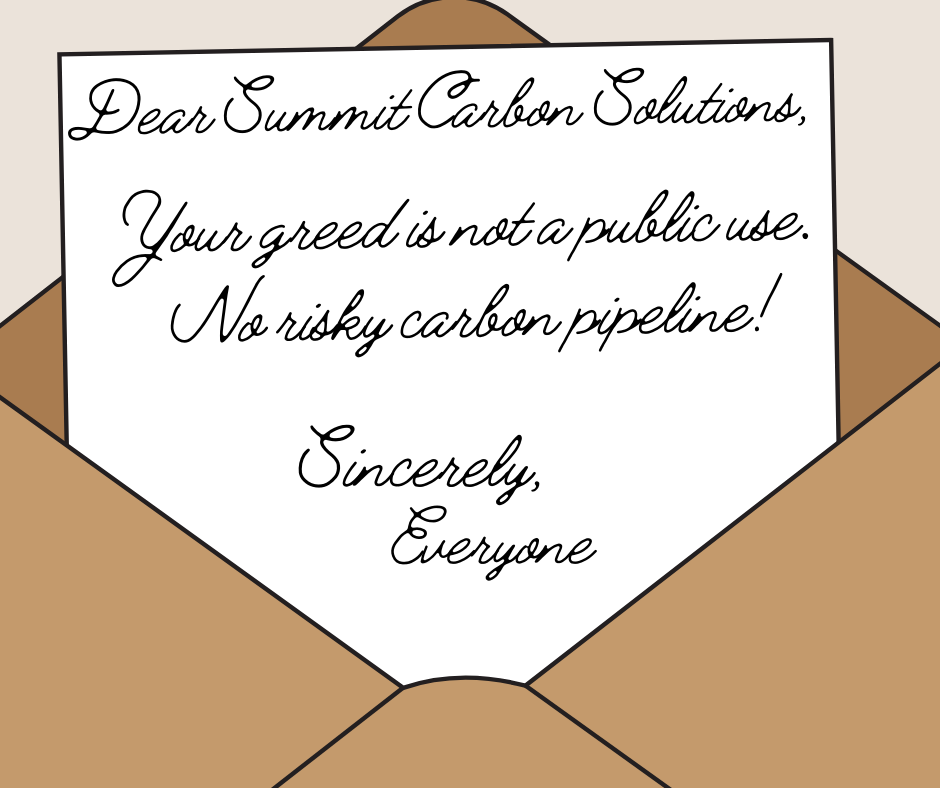 Dear Summit Carbon Solutions,
Your greed is not a public use.
No risky carbon pipeline!
Sincerely,
Everyone